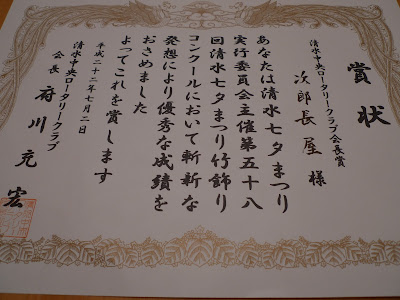 賞状
清水中央ロータリークラブ会長賞
次郎長屋 様
あなたは清水七夕まつり
実行委員会主催第五十八
回清水七夕まつり竹飾り
コンクールにおいて斬新な
発想により優秀な成績を
おさめました
よってこれを賞します
平成二十二年七月二日
清水中央ロータリークラブ
会長 府川充宏